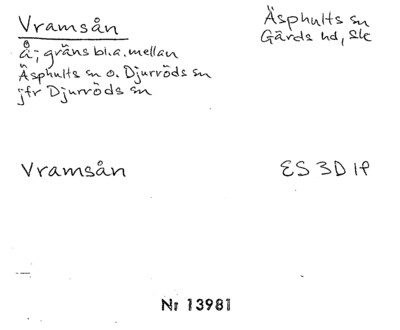 Vramsån
Äsphults sn
Gärds hd, Sk
å; gräns bl.a. mellan
Äsphults sn o. Djurröds sn
jfr Djurröds sn
Vramsån
ES 3D 1f
Nr 13981